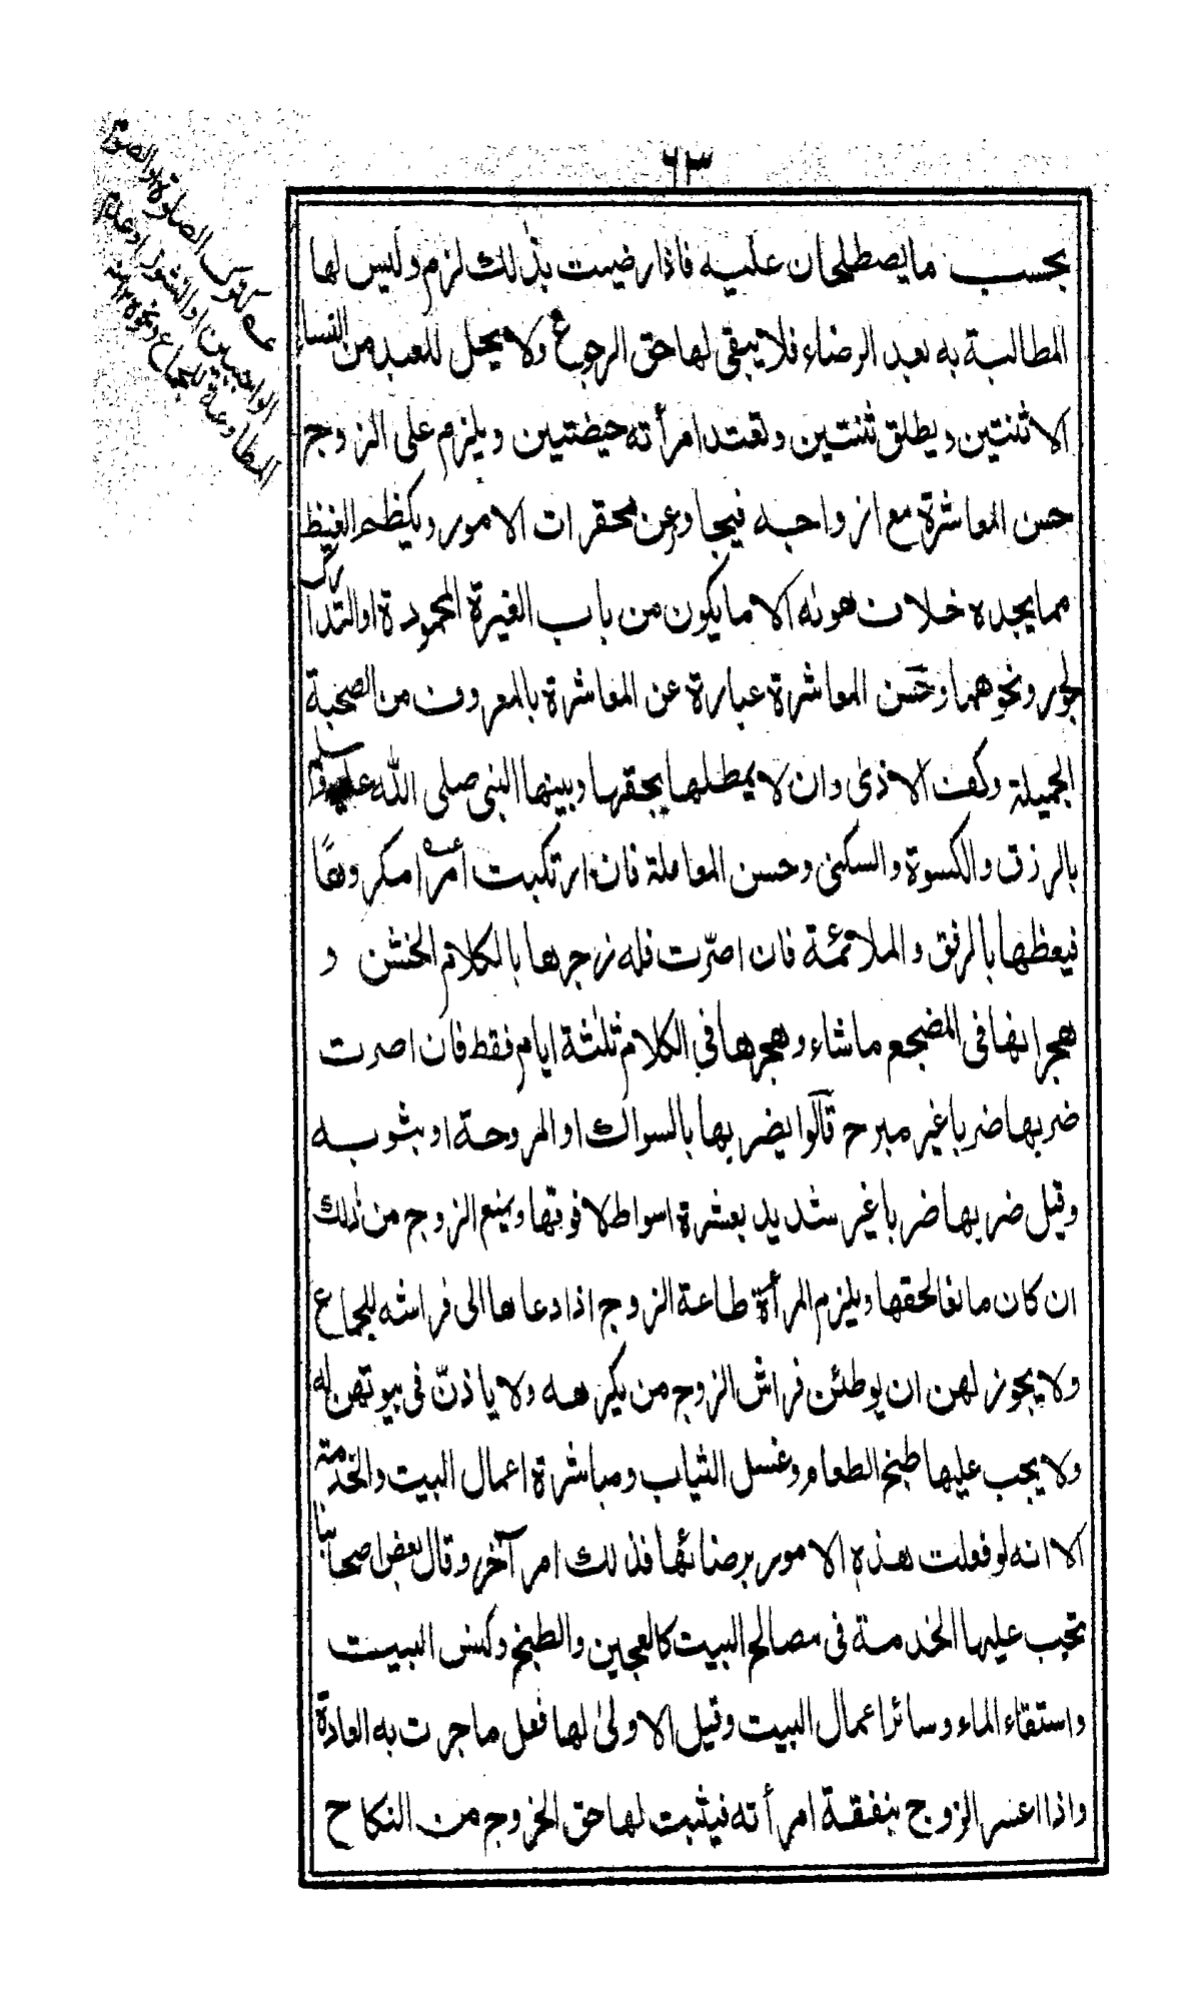 ٦٣
بحسب ما يصطلحان عليه فاذا رضيت بذلك لزم وليس لها
المطالبة به بعد الرضاء فلا يبقى لها حق الرجوع ولا يحل للعبد من النساء
الا ثنتين ويطلق ثنتين وتعتد امرأته حيضتين ويلزم على الزوج
حسن المعاشرة مع ازواجه فيجاوز عن محقرات الامور ويكظم الغيظ
مما يجده خلاف هونه الا ما يكون من باب الغيرة المحمودة او التدارك
لجور ونحوهما وحسن المعاشرة عبارة عن المعاشرة بالمعروف من الصحبة
الجميلة وكف الاذى وان لا يمطلها بحقها وبينها النبى صلى الله عليه وسلم
بالرزق والكسوة والسكنى وحسن المعاملة فان ارتكبت امرًا مكروهًا
فيعظها بالرفق والملائمة فان اصرّت فله زجرها بالكلام الخشن و
هجرانها فى المضجع ما شاء وهجرها فى الكلام ثلثة ايام فقط فان اصرت
ضربها ضربا غير مبرح قالوا يضربها بالسواك او المروحة او بثوبه
وقيل ضربها ضربا غير شديد بعشرة اسواط لا فوقها ويمنع الزوج من ذلك
ان كان مانعا لحقها ويلزم المرأة طاعة الزوج اذا دعاها الى فراشه للجماع
ولا يجوز لهن ان يوطئن فراش الزوج من يكرهه ولا ياذنّ فى بيوتهن له
ولا يجب عليها طبخ الطعام وغسل الثياب ومباشرة اعمال البيت والخدمة
الا انه لو فعلت هذه الامور برضائها فذلك امر آخر وقال بعض اصحابنا
تجب عليها الخدمة فى مصالح البيت كالعجين والطبخ وكنس البيت
واستقاء الماء وسائر اعمال البيت وقيل الاولىٰ لها فعل ما جرت به العادة
واذا اعسر الزوج بنفقة امرأته فيثبت لها حق الخروج من النكاح
عه كترك الصلوة والصوم
الواجبين او النشوز او عدم
المطاوعة للجماع ونحوه ١٢ منه